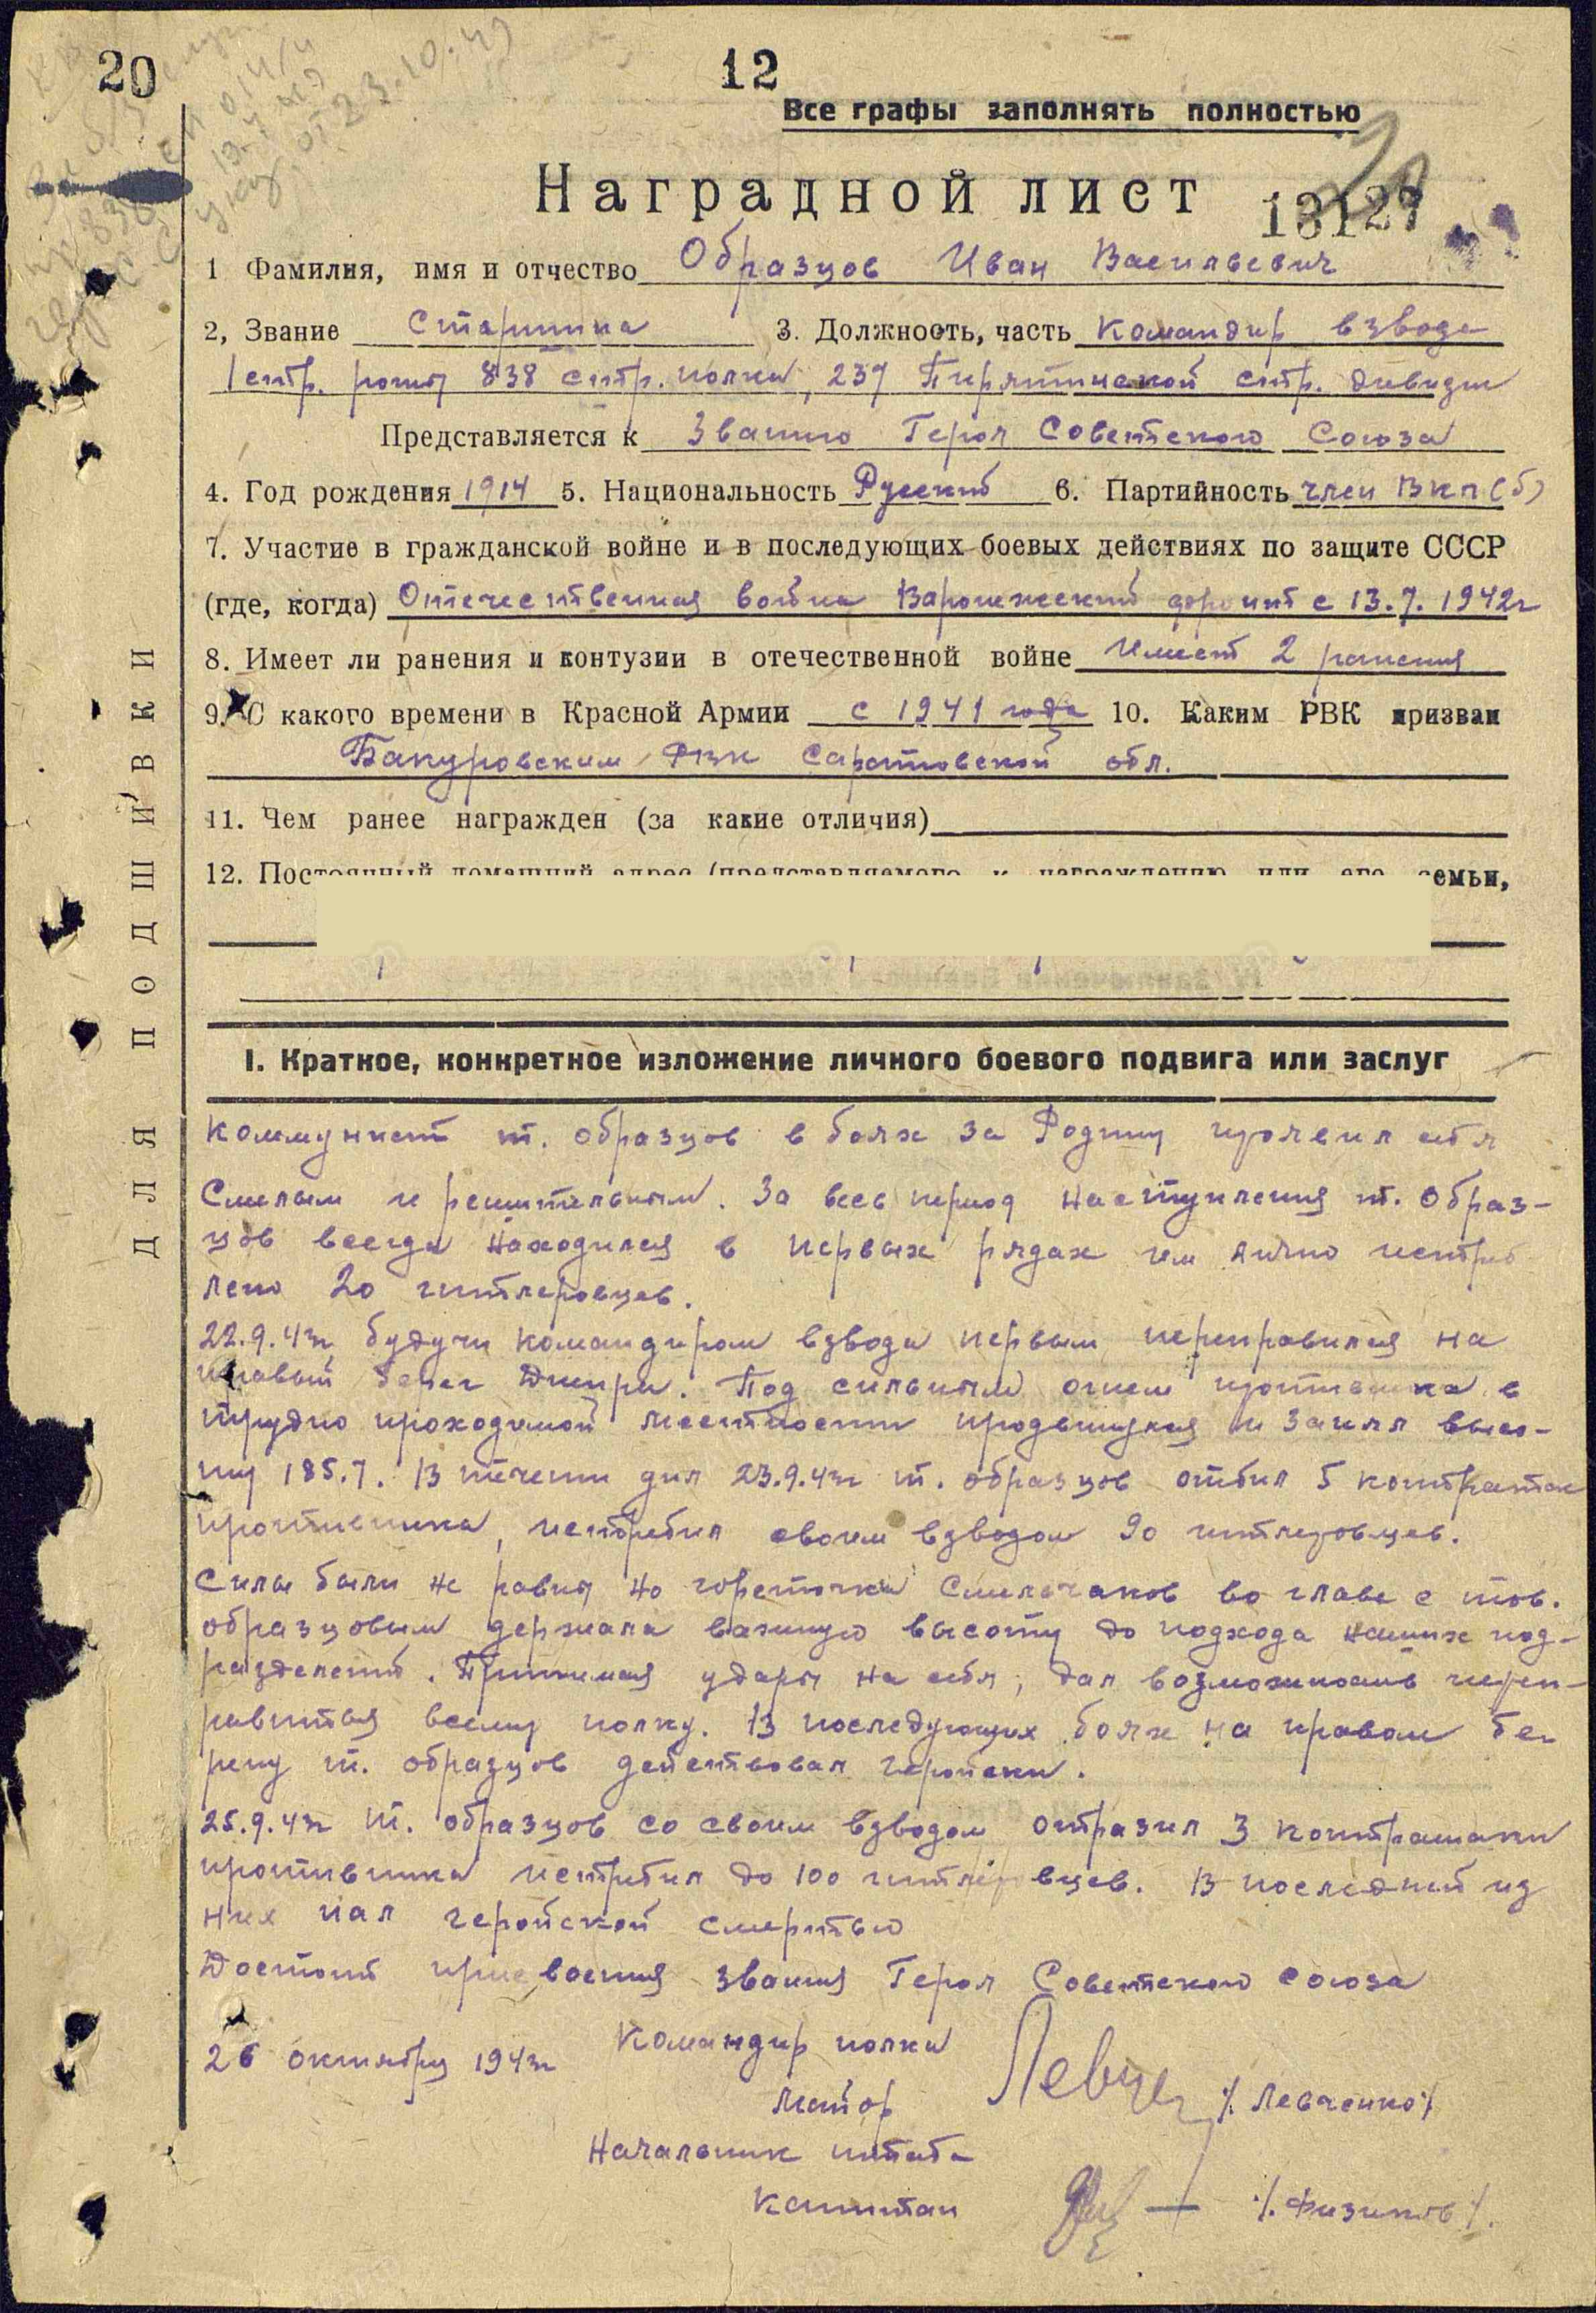 20
12
Все графы заполнять полностью
Наградной лист
13127
1 Фамилия, имя и отчество Образцов Иван Васильевич
2, Звание Старшина 3. Должность, часть Командир взвода
1 стр. роты 838 стр. полка, 237 Пирятинской стр. дивизии
Представляется к Званию Героя Советского Союза
4. Год рождения 1914 5. Национальность Русский 6. Партийность член ВКП(б)
7. Участие в гражданской войне и в последующих боевых действиях по защите СССР
(где, когда) Отечественная война Варонежский фронт с 13.7.1942г
8. Имеет ли ранения и контузии в отечественной войне Имеет 2 ранения
9. С какого времени в Красной Армии с 1941 года 10. Каким РВК призван
Бакуровским РВК Саратовской обл.
11. Чем ранее награжден (за какие отличия)
12. Постоянный домашний адрес (представляемого к награждению или его семьи,
ДЛЯ ПОДШИВКИ
I. Краткое, конкретное изложение личного боевого подвига или заслуг
Коммунист т. Образцов в боях за Родину проявил себя
Смелым и решительным. За весь период наступления т. Образ-
цов всегда находился в первых рядах им лично истреб
лено 20 гитлеровцев.
22.9.43г будучи командиром взвода первым переправился на
правый берег Днепра. Под сильным огнем противника в
трудно проходимой местности продвинулся и занял высо-
ту 185.7. В течении дня 23.9.43г т. Образцов отбил 5 контратак
противника, истребил своим взводом 90 гитлеровцев.
Силы были не равны но горсточка Смельчаков во главе с тов.
Образцовым держала важную высоту до подхода наших под-
разделений. Принимая удары на себя, дал возможность переп-
равиться всему полку. В последующих боях на правом бе-
регу т. Образцов действовал геройски.
25.9.43г т. Образцов со своим взводом отразил 3 контратаки
противника истребил до 100 гитлеровцев. В последний из
них пал геройской смертью
Достоин присвоения звания Героя Советского Союза
26 октября 1943г Командир полка
Майор /Левченко/
Начальник штаба
Капитан /Физиков/.